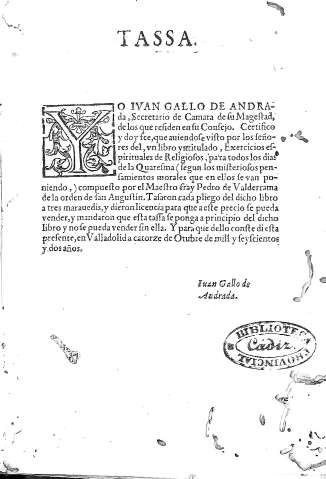 TASSA.
YO IVAN GALLO DE ANDRA-
da, Secretario de Camara de su Magestad,
de los que residen en su Consejo. Certifico
y doy fee, que auiendose visto por los seño-
res del, vn libro yntitulado, Exercicios es-
pirituales de Religiosos, para todos los dias
de la Quaresma (segun los misteriosos pen-
samientos morales que en ellos se van po-
niendo,) compuesto por el Maestro fray Pedro de Valderrama
de la orden de san Augustin. Tasaron cada pliego del dicho libro
a tres marauedis, y dieron licencia para que a este precio se pueda
vender, y mandaron que esta tassa se ponga a principio del dicho
libro y no se pueda vender sin ella. Y para que dello conste di esta
presente, en Valladolid a catorze de Otubre de mill y seyscientos
y dos años.
Iuan Gallo de
Andrada.
BIBLIOTECA
Cádiz
PROVINCIAL